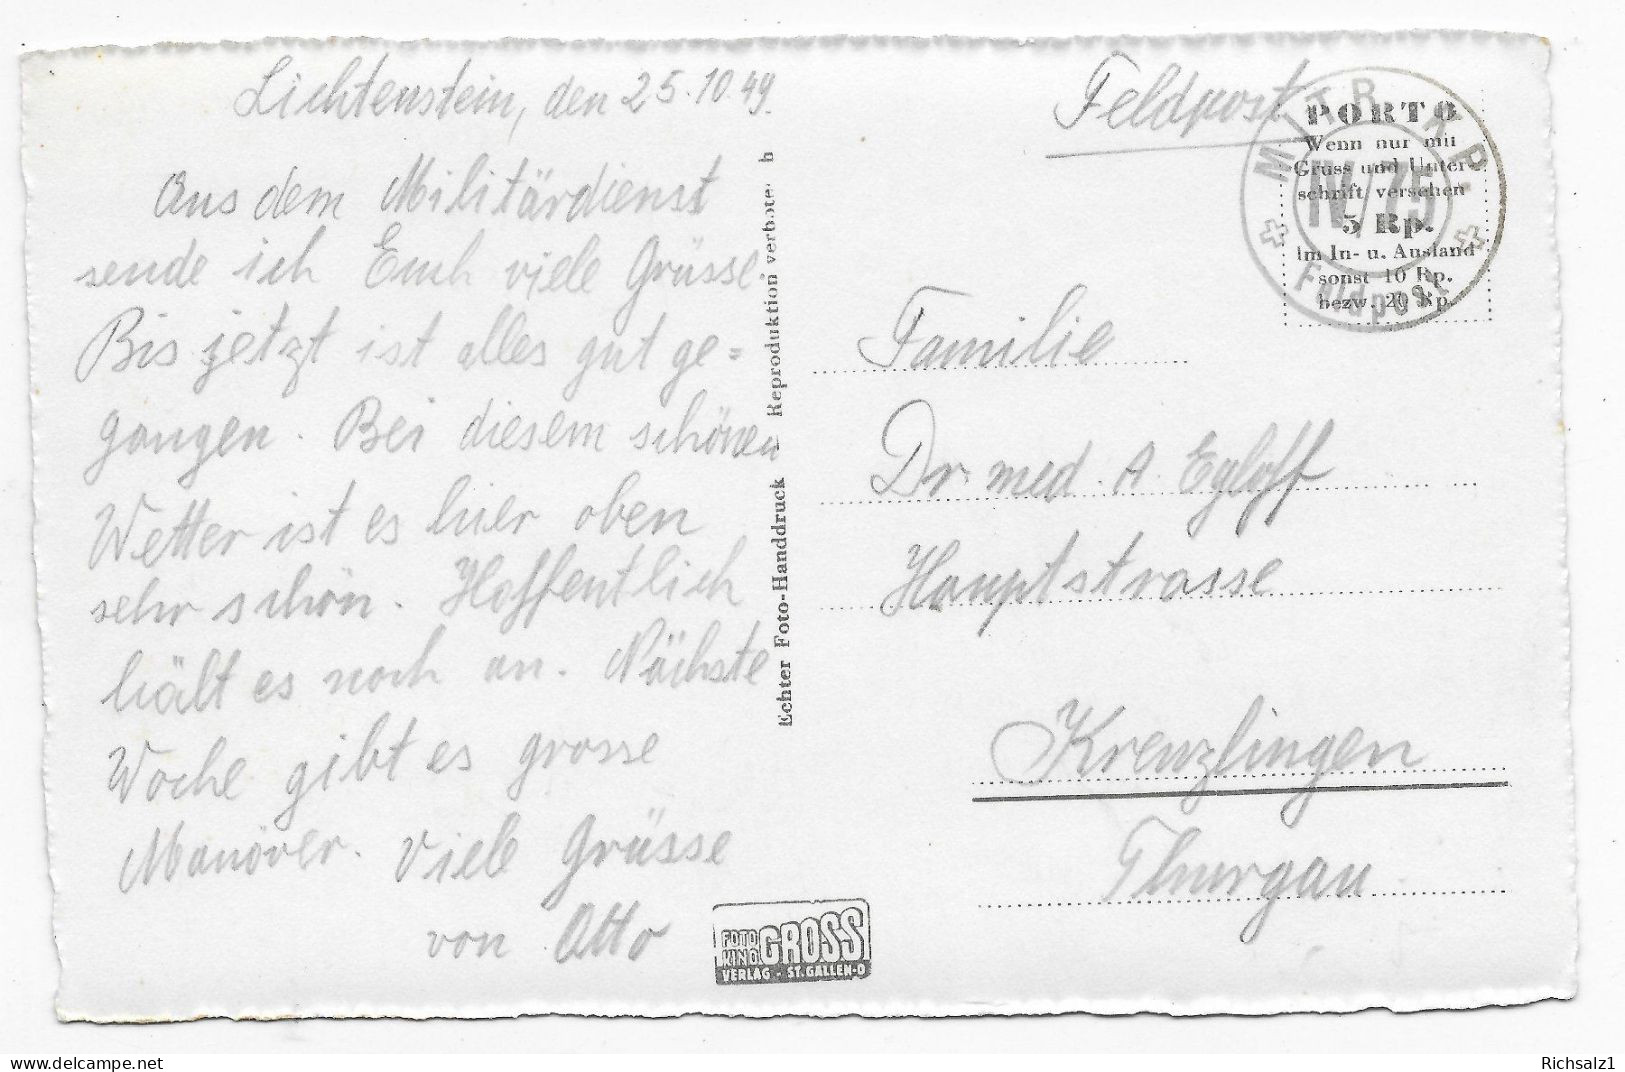 Lichtenstein, den 25.10.49.
Aus dem Militärdienst
sende ich Euch viele Grüsse.
Bis jetzt ist alles gut ge=
gangen. Bei diesem schönen
Wetter ist es hier oben
sehr schön. Hoffentlich
hält es noch an. Nächste
Woche gibt es grosse
Manöver. Viele Grüsse
von Otto
Echter Foto-Handdruck Reproduktion verboten b
FOTO
KINO GROSS
VERLAG - ST. GALLEN-O
Feldpost
PORTO
Wenn nur mit
Gruss und Unter-
schrift versehen
5 Rp.
im In- u. Ausland
sonst 10 Rp.
bezw. 20 Rp.
MITR. KP.
IV/75
Feldpost
Familie
Dr med. A. Egloff
Hauptstrasse
Kreuzlingen
Thurgau
delcampe.net
Richsalz1